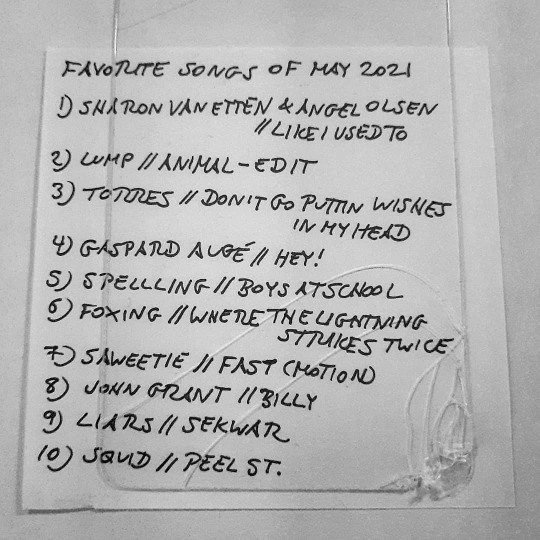 FAVORITE SONGS OF MAY 2021
1) SHARON VAN ETTEN & ANGEL OLSEN
// LIKE I USED TO
2) LUMP // ANIMAL - EDIT
3) TORRES // DON'T GO PUTTIN WISHES
IN MY HEAD
4) GASPARD AUGÉ // HEY!
5) SPELLLING // BOYS AT SCHOOL
6) FOXING // WHERE THE LIGHTNING
STRIKES TWICE
7) SAWEETIE // FAST (MOTION)
8) JOHN GRANT // BILLY
9) LIARS // SEKWAR
10) SQUID // PEEL ST.